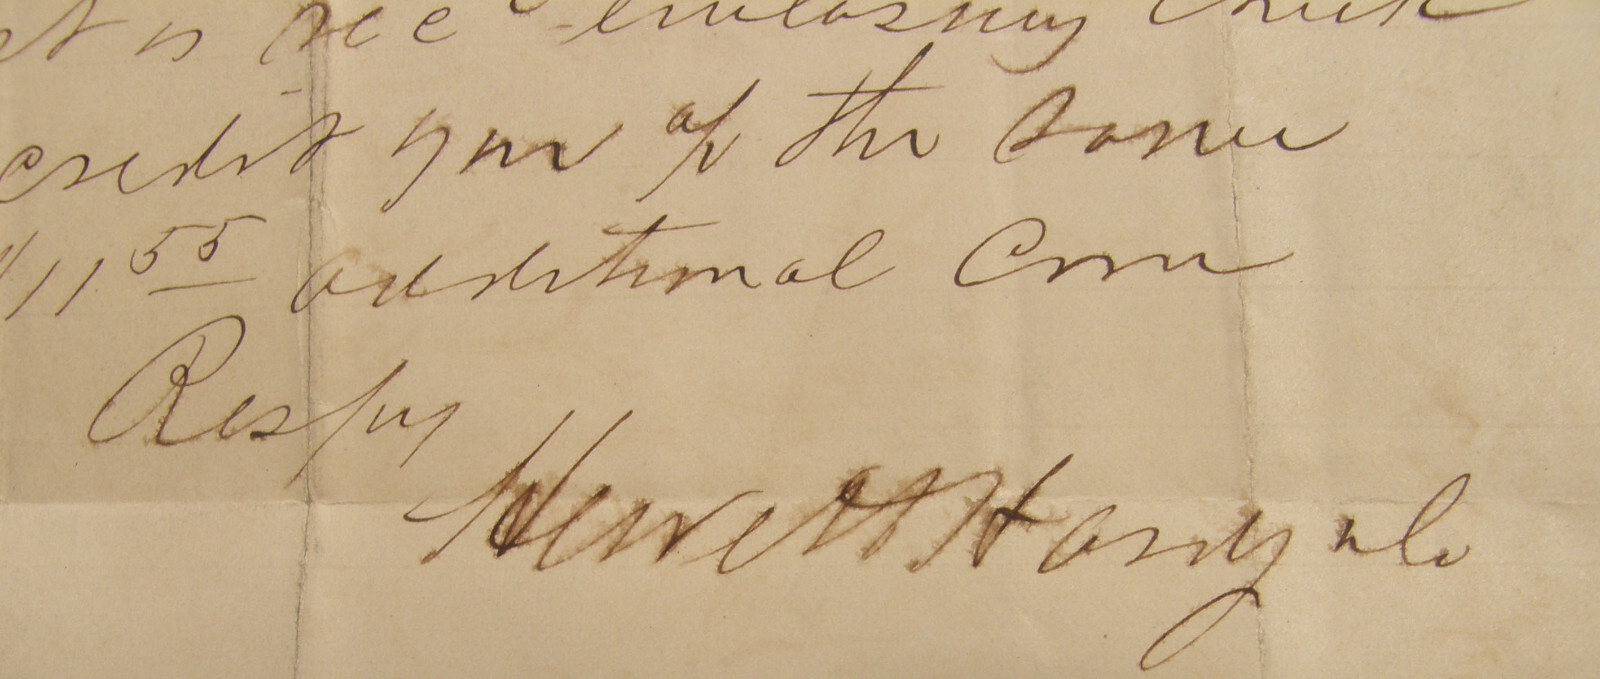 is rec^d enclosing check
credit your a/c the same
$11 55 additional Com
Respy
Hewett Hardy & Co